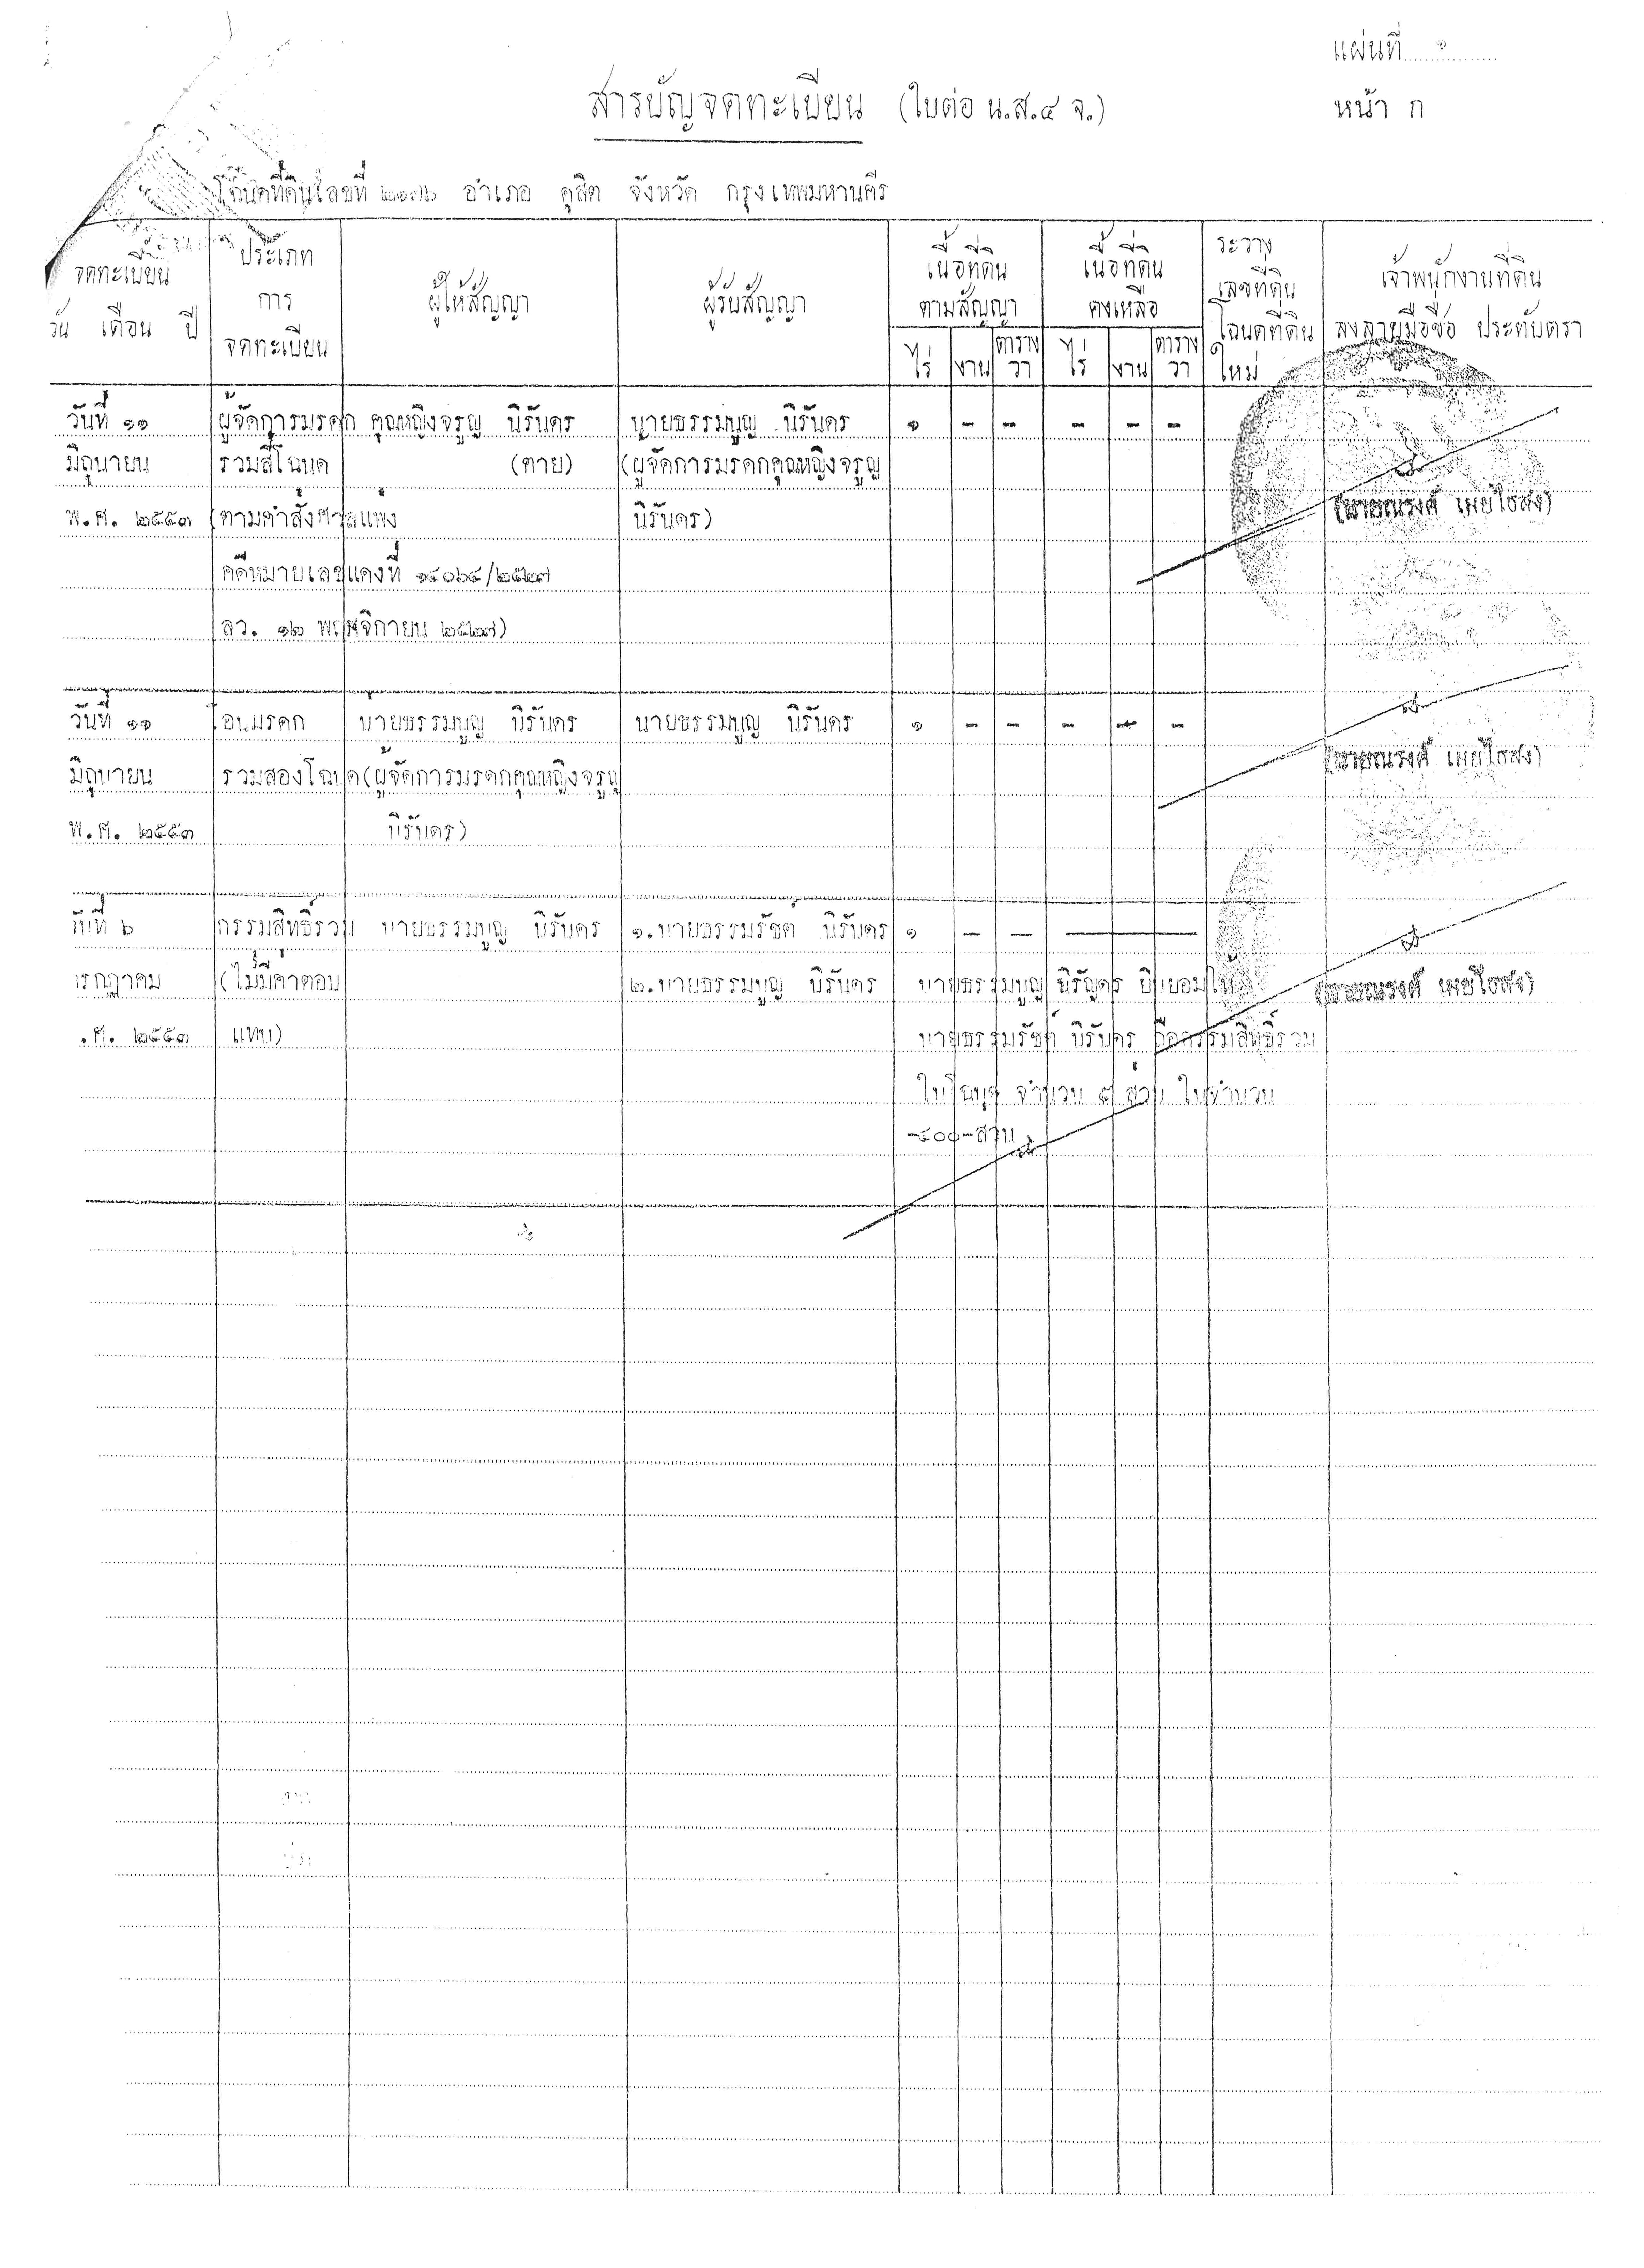 แผ่นที่ ๑
สารบัญจดทะเบียน (ใบต่อ น.ส.๔ จ.)
หน้า ก
โฉนดที่ดินเลขที่ ๒๑๗๖ อำเภอ ดุสิต จังหวัด กรุงเทพมหานคร
จดทะเบียน
วัน เดือน ปี
ประเภท
การ
จดทะเบียน
ผู้ให้สัญญา
ผู้รับสัญญา
เนื้อที่ดิน
ตามสัญญา
ไร่ งาน ตารางวา
เนื้อที่ดิน
คงเหลือ
ไร่ งาน ตารางวา
ระวาง
เลขที่ดิน
โฉนดที่ดิน
ใหม่
เจ้าพนักงานที่ดิน
ลงลายมือชื่อ ประทับตรา
วันที่ ๑๑ ผู้จัดการมรดก คุณหญิงจรูญ นิรันดร นายธรรมนูญ นิรันดร ๑ - - - - -
มิถุนายน รวมสี่โฉนด (ตาย) (ผู้จัดการมรดกคุณหญิงจรูญ
พ.ศ. ๒๕๕๓ (ตามคำสั่งศาลแพ่ง นิรันดร) (นายณรงค์ เผยไธสง)
คดีหมายเลขแดงที่ ๑๔๐๖๔/๒๕๒๗
ลว. ๑๒ พฤศจิกายน ๒๕๒๗)
วันที่ ๑๑ โอนมรดก นายธรรมนูญ นิรันดร นายธรรมนูญ นิรันดร ๑ - - - - -
มิถุนายน รวมสองโฉนด (ผู้จัดการมรดกคุณหญิงจรูญ (นายณรงค์ เผยไธสง)
พ.ศ. ๒๕๕๓ นิรันดร)
วันที่ ๖ กรรมสิทธิ์รวม นายธรรมนูญ นิรันดร ๑.นายธรรมรัชต์ นิรันดร ๑ - -
รกฎาคม (ไม่มีค่าตอบ ๒.นายธรรมนูญ นิรันดร นายธรรมนูญ นิรันดร ยินยอมให้ (นายณรงค์ เผยไธสง)
.ศ. ๒๕๕๓ แทน) นายธรรมรัชต์ นิรันดร ถือกรรมสิทธิ์รวม
ในโฉนด จำนวน ส่วน ในจำนวน
-๔๐๐-ส่วน